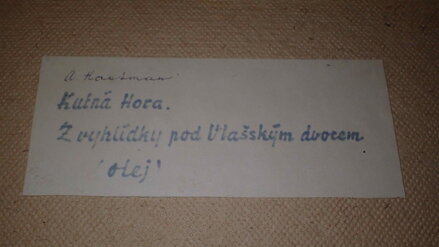 Kutná Hora.
Z vyhlídky pod Vlašským dvorem
(olej)